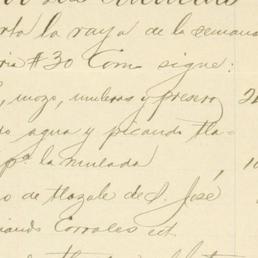 rta la raya de la semana
ria #30 Com. sigue:
, mozo, muleros y presero
do agua y picando tla-
pª la mulada
o de tlazole de S. José
iando Corrales ect.